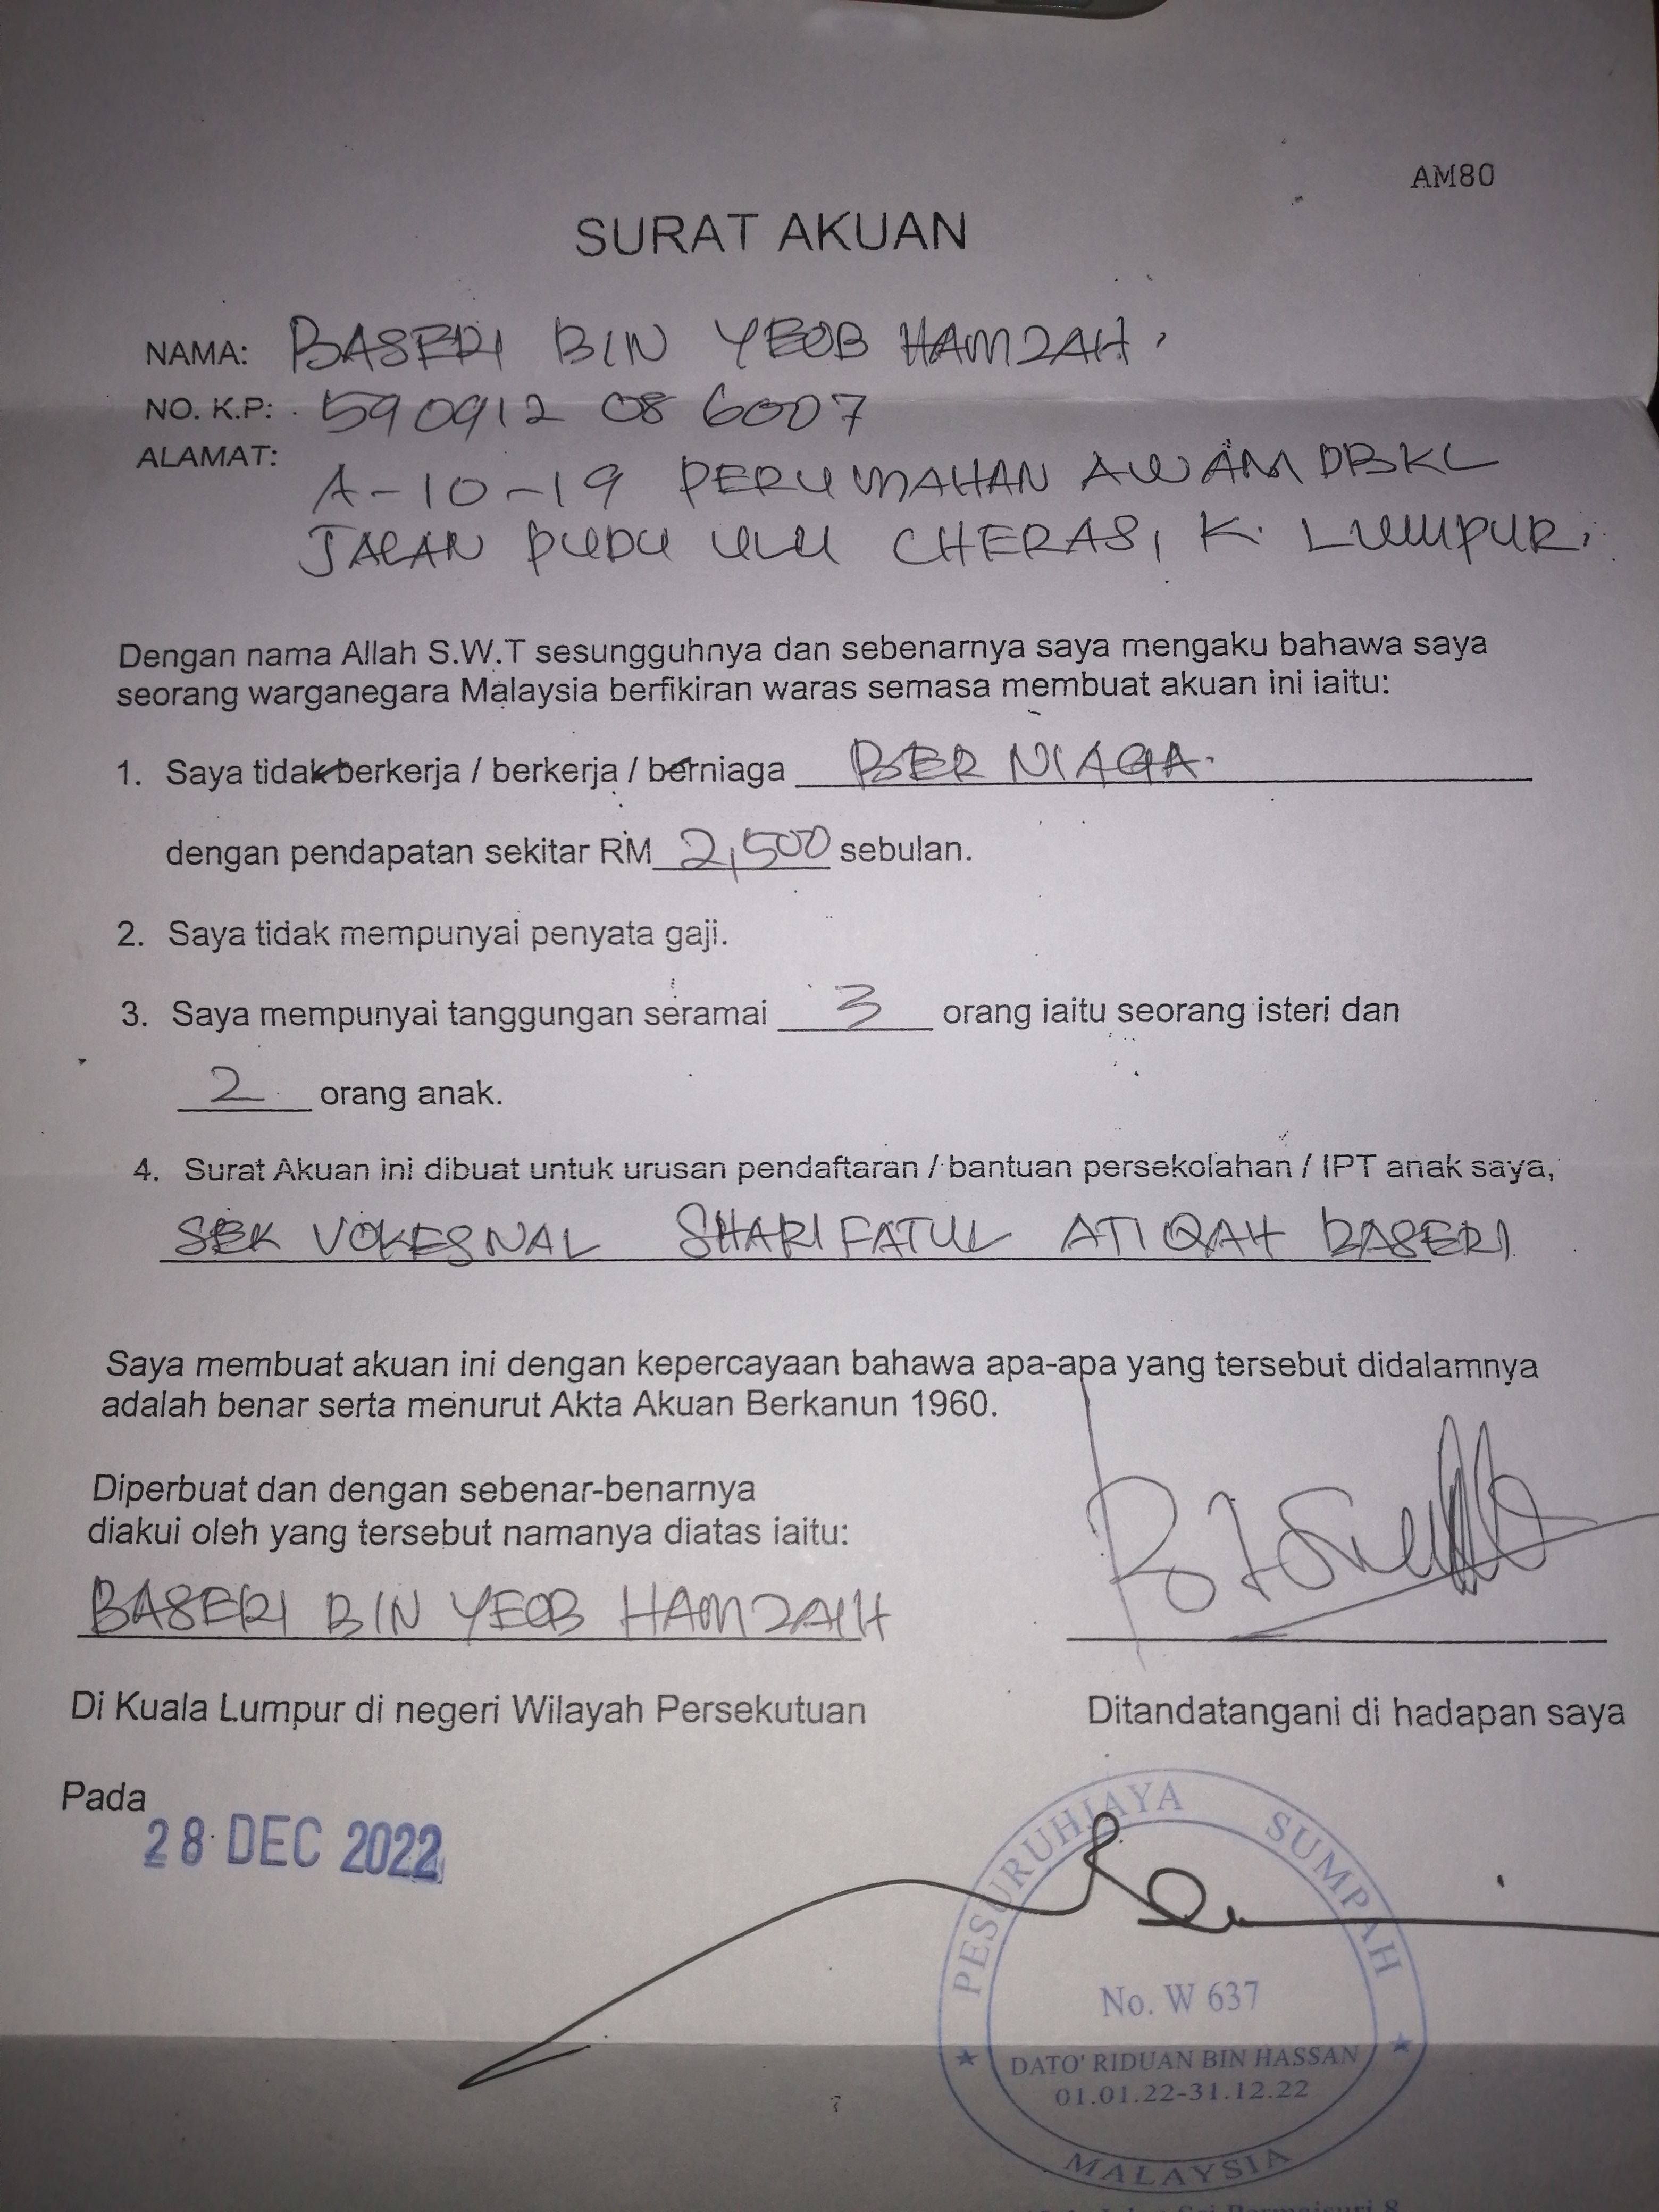 AM80
SURAT AKUAN
NAMA: BASERI BIN YEOB HAMZAH.
NO. K.P: 590912 08 6007
ALAMAT:
A-10-19 PERUMAHAN AWAM DBKL
JALAN PUDU ULU CHERAS, K. LUMPUR.
Dengan nama Allah S.W.T sesungguhnya dan sebenarnya saya mengaku bahawa saya
seorang warganegara Malaysia berfikiran waras semasa membuat akuan ini iaitu:
1. Saya tidak berkerja / berkerja / berniaga BERNIAGA.
dengan pendapatan sekitar RM 2,500 sebulan.
2. Saya tidak mempunyai penyata gaji.
3. Saya mempunyai tanggungan seramai 3 orang iaitu seorang isteri dan
2 orang anak.
4. Surat Akuan ini dibuat untuk urusan pendaftaran / bantuan persekolahan / IPT anak saya,
SEK VOKESNAL SHARIFATUL ATIQAH BASERI
Saya membuat akuan ini dengan kepercayaan bahawa apa-apa yang tersebut didalamnya
adalah benar serta menurut Akta Akuan Berkanun 1960.
Diperbuat dan dengan sebenar-benarnya
diakui oleh yang tersebut namanya diatas iaitu:
BASERI BIN YEOB HAMZAH
Di Kuala Lumpur di negeri Wilayah Persekutuan
Ditandatangani di hadapan saya
Pada
28 DEC 2022
PESURUHJAYA SUMPAH
No. W 637
DATO' RIDUAN BIN HASSAN
01.01.22-31.12.22
MALAYSIA